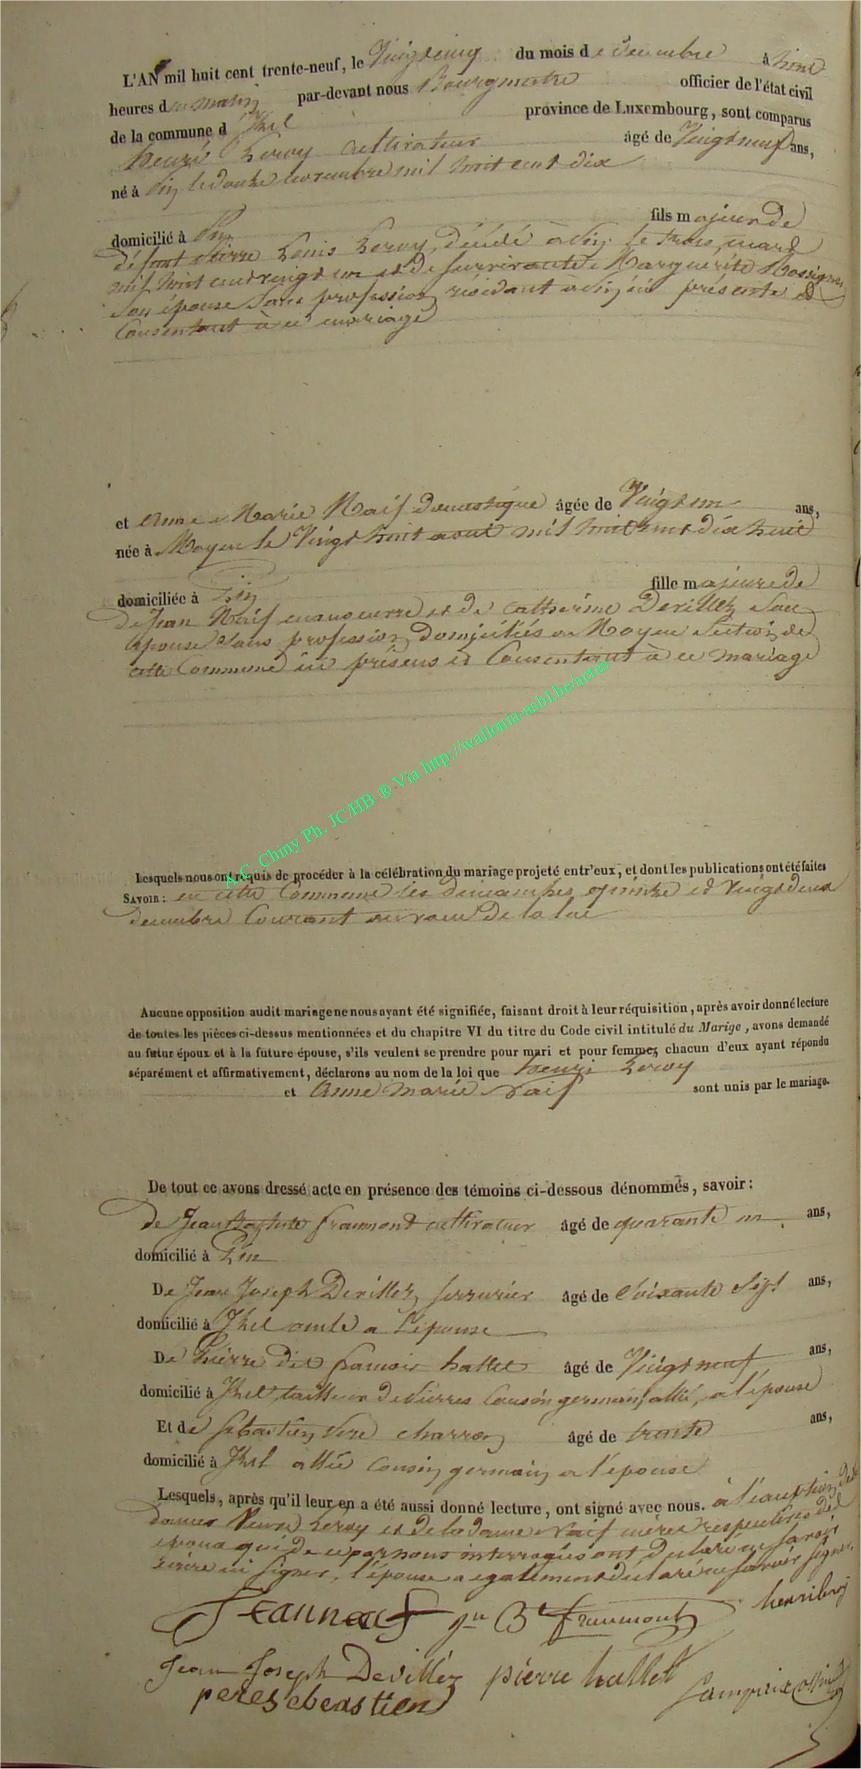 L'AN mil huit cent trente-neuf, le Vingt cinq du mois de Decembre à
heures du matin par-devant nous Bourgmestre officier de l'état civil
de la commune d' Izel province de Luxembourg, sont comparus
henri Leroy cultivateur âgé de Vingt neuf ans,
né à Pin le douze novembre mil huit cent dix
domicilié à Pin fils majeur de
défunt Pierre Louis Leroy, décédé à Pin le trois mars
mil huit cent vingt un et de survivante Marguerite
son épouse sans profession résidant à Pin ici présente et
Consentant à ce mariage
et Anne Marie Naif domestique âgée de Vingt un ans,
née à Moyen le Vingt huit aout mil huit cent dix huit
domiciliée à Pin fille majeure de
de Jean Naif manoeuvre et de Catherine Devillez son
épouse sans profession domiciliés a Moyen section de
cette Commune ici présens et Consentant à ce mariage
A.C. Chiny Ph. JC/HB ® Via http://wallonia-asbl.be/actes
Lesquels nous ont requis de procéder à la célébration du mariage projeté entr'eux, et dont les publications ont été faites
SAVOIR : en cette Commune les dimanches quinze et vingt deux
decembre Courant au voeu de la loi
Aucune opposition audit mariage ne nous ayant été signifiée, faisant droit à leur réquisition, après avoir donné lecture
de toutes les pièces ci-dessus mentionnées et du chapitre VI du titre du Code civil intitulé du Marige, avons demandé
au futur époux et à la future épouse, s'ils veulent se prendre pour mari et pour femme, chacun d'eux ayant répondu
séparément et affirmativement, déclarons au nom de la loi que henri Leroy
et Anne Marie Naif sont unis par le mariage.
De tout ce avons dressé acte en présence des témoins ci-dessous dénommés, savoir :
De Jean Baptiste fraumont cultivateur âgé de quarante un ans,
domicilié à Pin
De Jean Joseph Devillez serrurier âgé de Soixante Sept ans,
domicilié à Izel oncle a l'épouse
De Pierre dit francois hallet âgé de Vingt neuf ans,
domicilié à Izel tailleur de Pierres Cousin germain allié a l'épouse
Et de Sébastien Pere charron âgé de trente ans,
domicilié à Izel allié Cousin germain a l'épouse
Lesquels, après qu'il leur en a été aussi donné lecture, ont signé avec nous. à l'exception de la
dames Veuve Leroy et de la dame Naif mères respectives des
époux qui de ce par nous interrogées ont déclaré ne savoir
écrire ni signer, l'épouse a egalement déclaré ne savoir signer.
Jean naif jn Bte fraumont henri leroy
Jean Joseph Devillez pierre hallet
pere sebastien